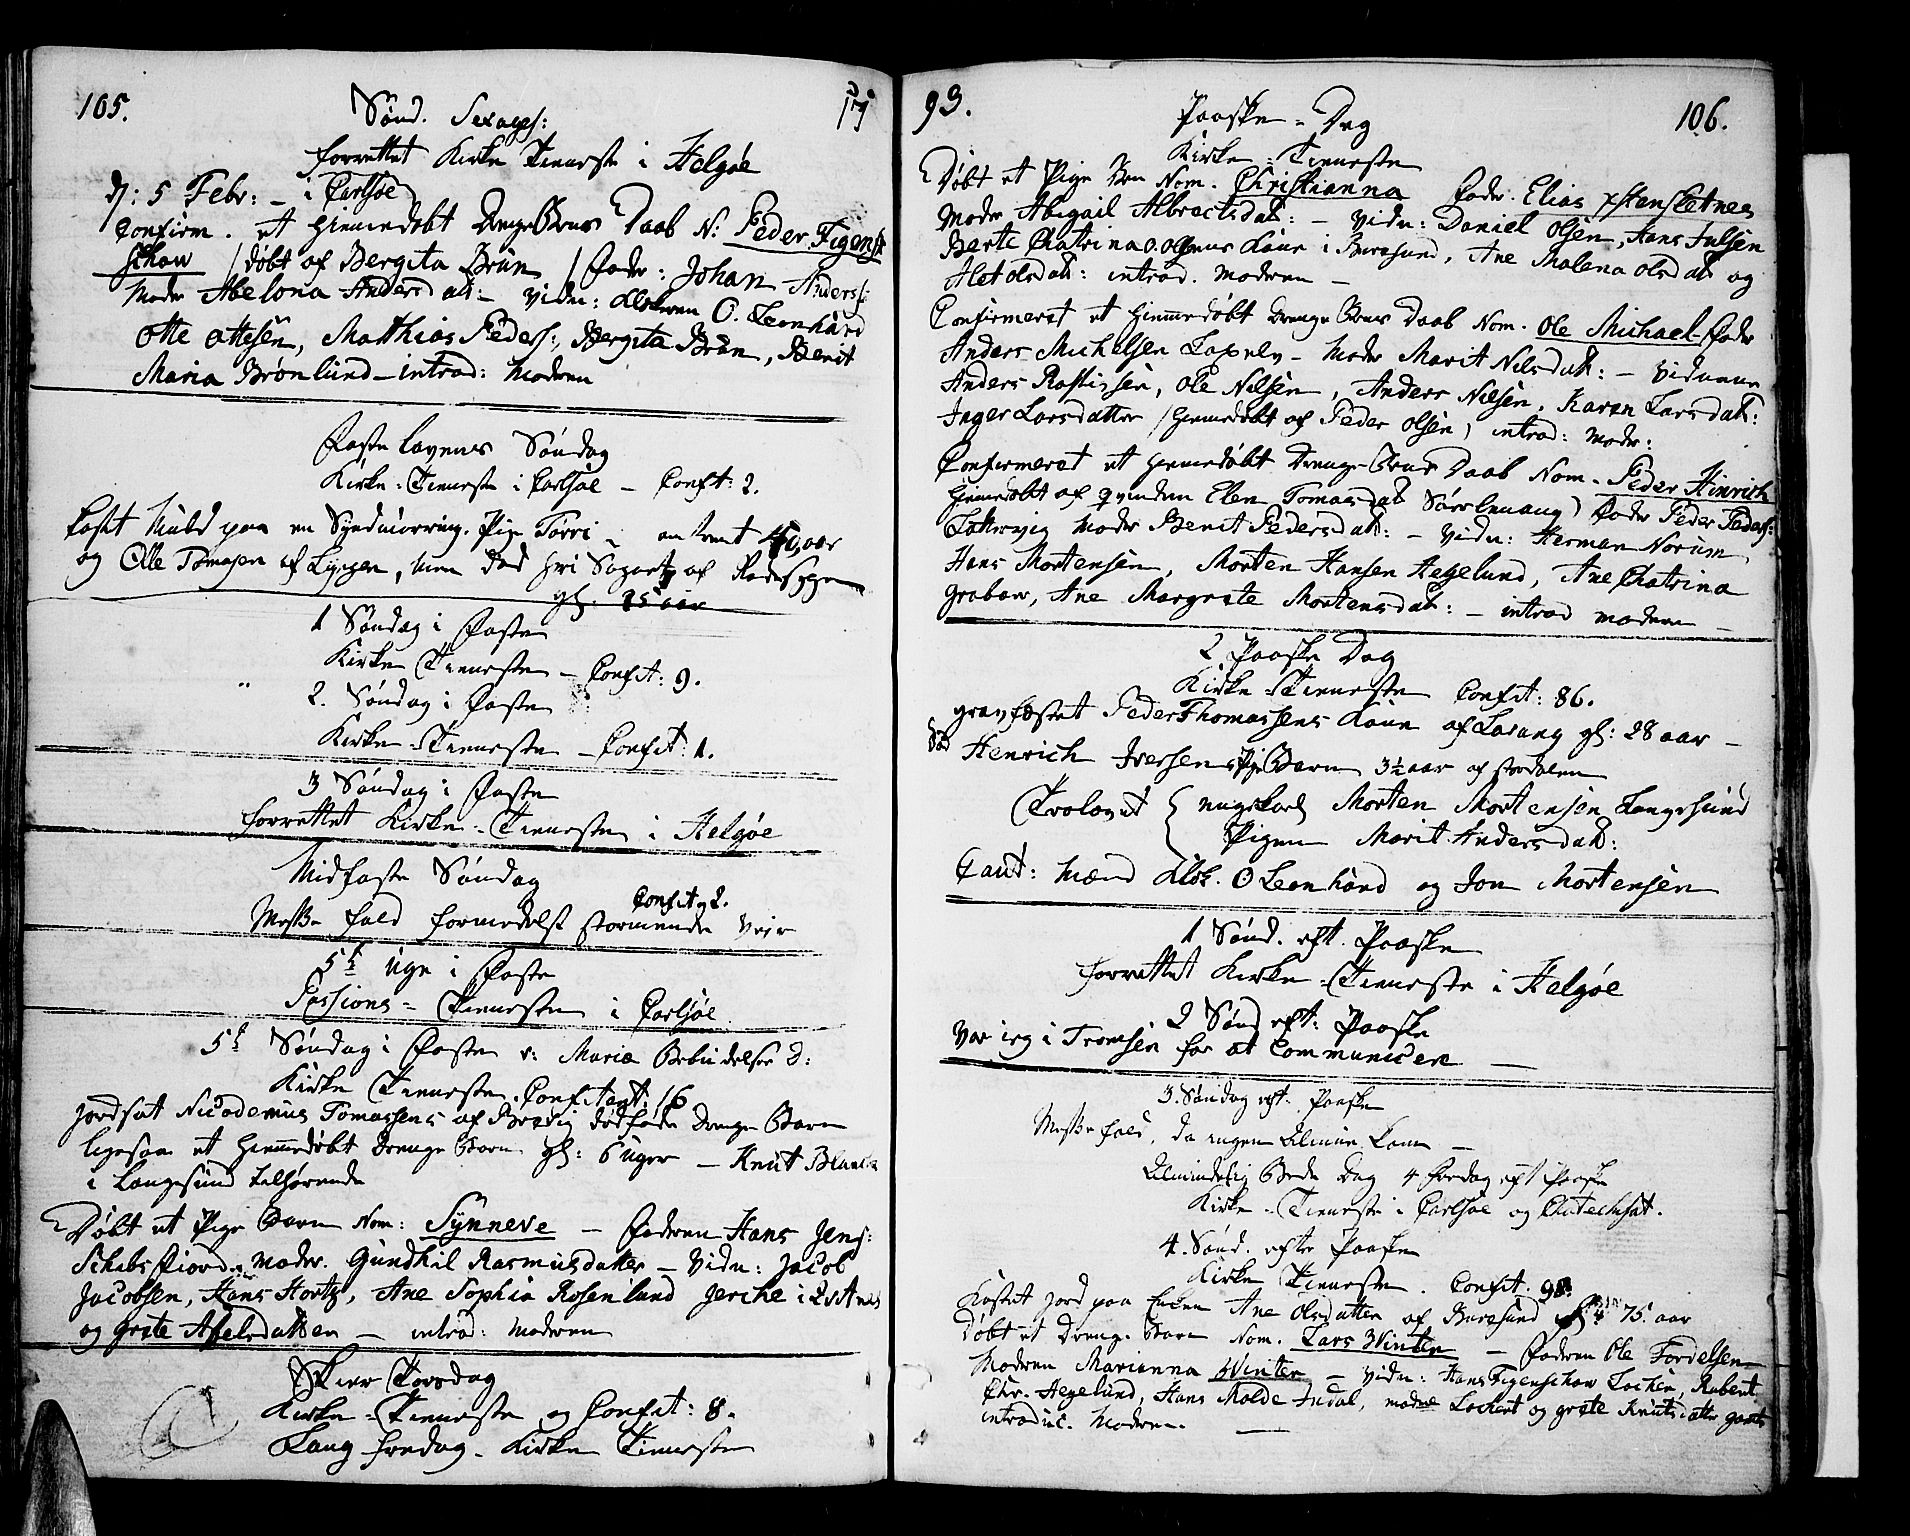 105.
17
Sønd. Sexages:
forrettet Kirke Tieneste i Helgøe
d: 5 Febr: - i Carlsøe
Confirm. et Hiemedøbt Drenge Barns Daab N: Peder Figen
schow / døbt af Bergita Brun / Fader: Johan Anderss:
Moder Abelona Andersdat: - Vidn: Klokeren O. Leonhard
Otte Ottesen, Matthias Peders:, Bergita Brun, Berit
Maria Brønlund - introd: Moderen
Faste Lavens Søndag
Kirke-Tieneste i Carlsøe - Confit: 2.
Kastet Muld paa en Pige Torri - omtrent 40 aar
og Olle Tomasen af Lyngen, men død hri af Radesygen
gl: 25 aar
1 Søndag i Faste
Kirke Tieneste - Confit: 9.
2. Søndag i Faste
Kirke-Tieneste - Confit: 1.
3 Søndag i Faste
forrettet Kirke-Tieneste i Helgøe
Midfaste Søndag
Confit. 2.
Messe fald formedelst stormende Veir
5te Uge i Faste
Passions-Tieneste i Carlsøe
5te Søndag i Faste v: Mariæ Bebudelse D:
Kirke Tieneste. Confitent: 16
Jordsat Nicodemus Tomassens af Bredvig dødføde Drenge Barn
ligesaa et Hiemmedøbt Drenge Barn gl: 6 uger - Knut
i Langesund tilhørende
Døbt et Pige Barn Nom: Synneve - Faderen Hans Jens:
Skibsfiord, Moder. Gundhil Rasmusdatter - Vidn: Jacob
Jacobsen, Hans Hortz, Ane Sophia Rosenlund
og Grete Axelsdatter - introd: Moderen
Skier Torsdag
Kirke-Tieneste og Confit: 8.
Lang Fredag - Kirke Tieneste
93.
106.
Paaske-Dag
Kirke-Tieneste
Døbt et Pige Barn Nom. Christianna Fader: Elias
Moder Abigail Albrectsdat: - Vidn: Daniel Olsen, Hans Julsen
Berte Chatrina Olsens Kone i Burøsund, Ane Malena Olsdat og
Alet Olsdat: introd. Moderen -
Confirmeret et Hiemmedøbt Drenge Barns Daab Nom. Ole Michael Fader
Anders Michelsen - Moder Marit Nilsdat: - Vidnerne
Anders Rastisen, Ole Nilsen, Anders Nilsen, Karen Larsdat:
Inger Larsdatter / Hiemedøbt af Peder Olsen) introd: Moder:
Confirmeret et Hiemedøbt Drenge-Barns Daab Nom. Peder Hinrich
Hiemedøbt af qvinden Elen Tomasdat Sørlenang) Fader Peder Peders:
Moder Berit Pedersdat: - Vidn: Herman Norum
Hans Mortensen, Morten Hansen Hegelund, Ane Chatrina
Grabow, Ane Margrete Mortensdat: - introd Moderen -
2 Paaske Dag
Kirke-Tieneste Confit: 86.
gravfæstet Peder Thomassens Kone af Lavang gl: 28 aar -
Henrich Iversens Pige Barn 3½ aar af Stordalen
Trolovet { Ungekarl Morten Mortensen Langesund
Pigen Marit Andersdat:
Caut: Mænd Klok. O Leonhard og Jon Mortensen
1 Sønd. eft. Paaske
forrettet Kirke-Tieneste i Helgøe
2 Sønd eft: Paaske
Var ieg i Tromsen for at Communicere
3. Søndag eft: Paaske
Messe fald, da ingen Almue kom -
Almindelig Bede Dag 4 Fredag eft Paaske
Kirke-Tieneste i Carlsøe og Chatechisat.
4. Sønd. efter Paaske
Kirke Tieneste. Confit. 98
Kastet Jord paa Enken Ane Olsdatter af Burøsund 75 aar
Døbt et Drenge Barn Nom. Lars Winter - Faderen Ole Fordelsen
Moderen Marianna Winter - Vidn: Hans Figenschow Lochen, Robert
Chr. Hegelund, Hans Molde Indal, Lochert og Grete Knutsdatter
introduc. Moderen.